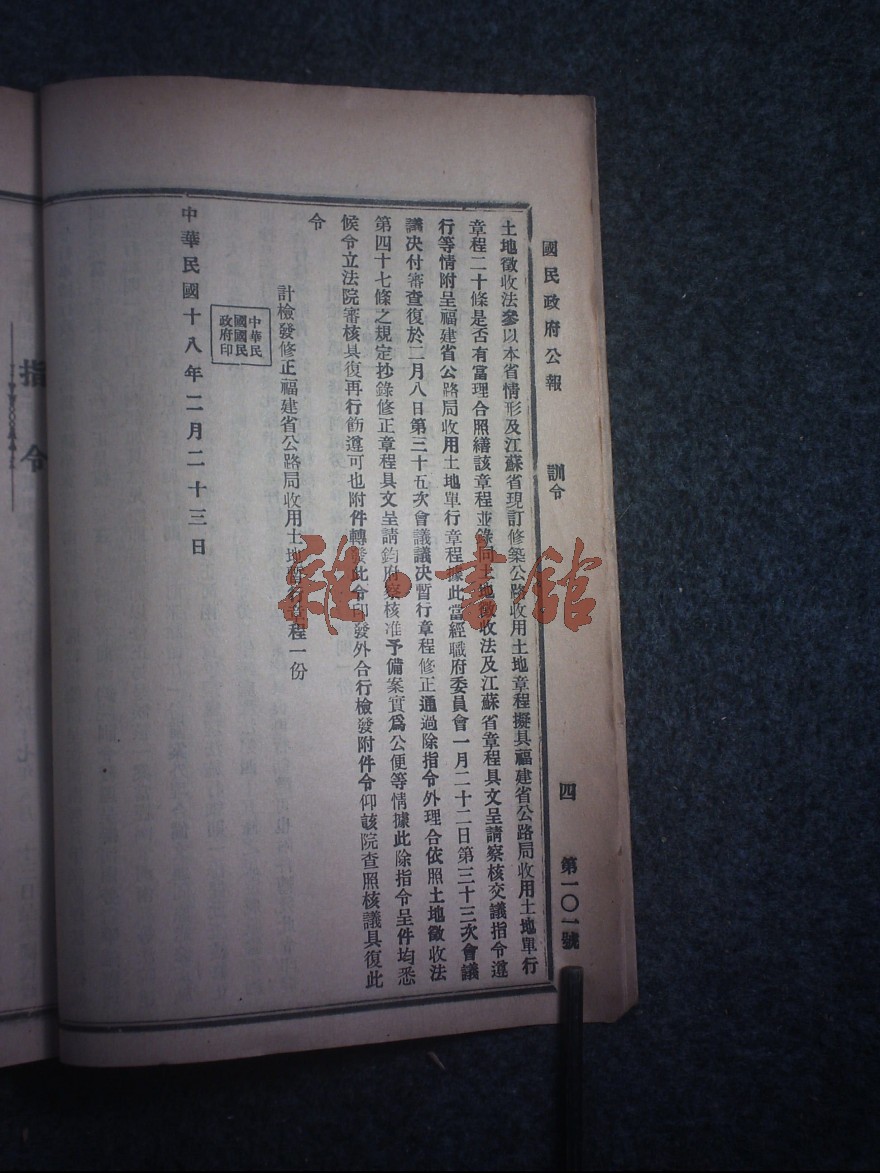 國民政府公報
訓令
四
第一〇一號
土地徵收法參以本省情形及江蘇省現訂修築公路收用土地章程擬具福建省公路局收用土地單行
章程二十條是否有當理合照繕該章程並錄同土地徵收法及江蘇省章程具文呈請察核交議指令遵
行等情附呈福建省公路局收用土地單行章程據此當經職府委員會一月二十二日第三十三次會議
議決付審查復於二月八日第三十五次會議議決暫行章程修正通過除指令外理合依照土地徵收法
第四十七條之規定抄錄修正章程具文呈請鈞府察核准予備案實爲公便等情據此除指令呈件均悉
候令立法院審核具復再行飭遵可也附件轉發此令印發外合行檢發附件令仰該院查照核議具復此
令
計檢發修正福建省公路局收用土地暫行章程一份
中華民
國國民
政府印
中華民國十八年二月二十三日
指令
雜·書館